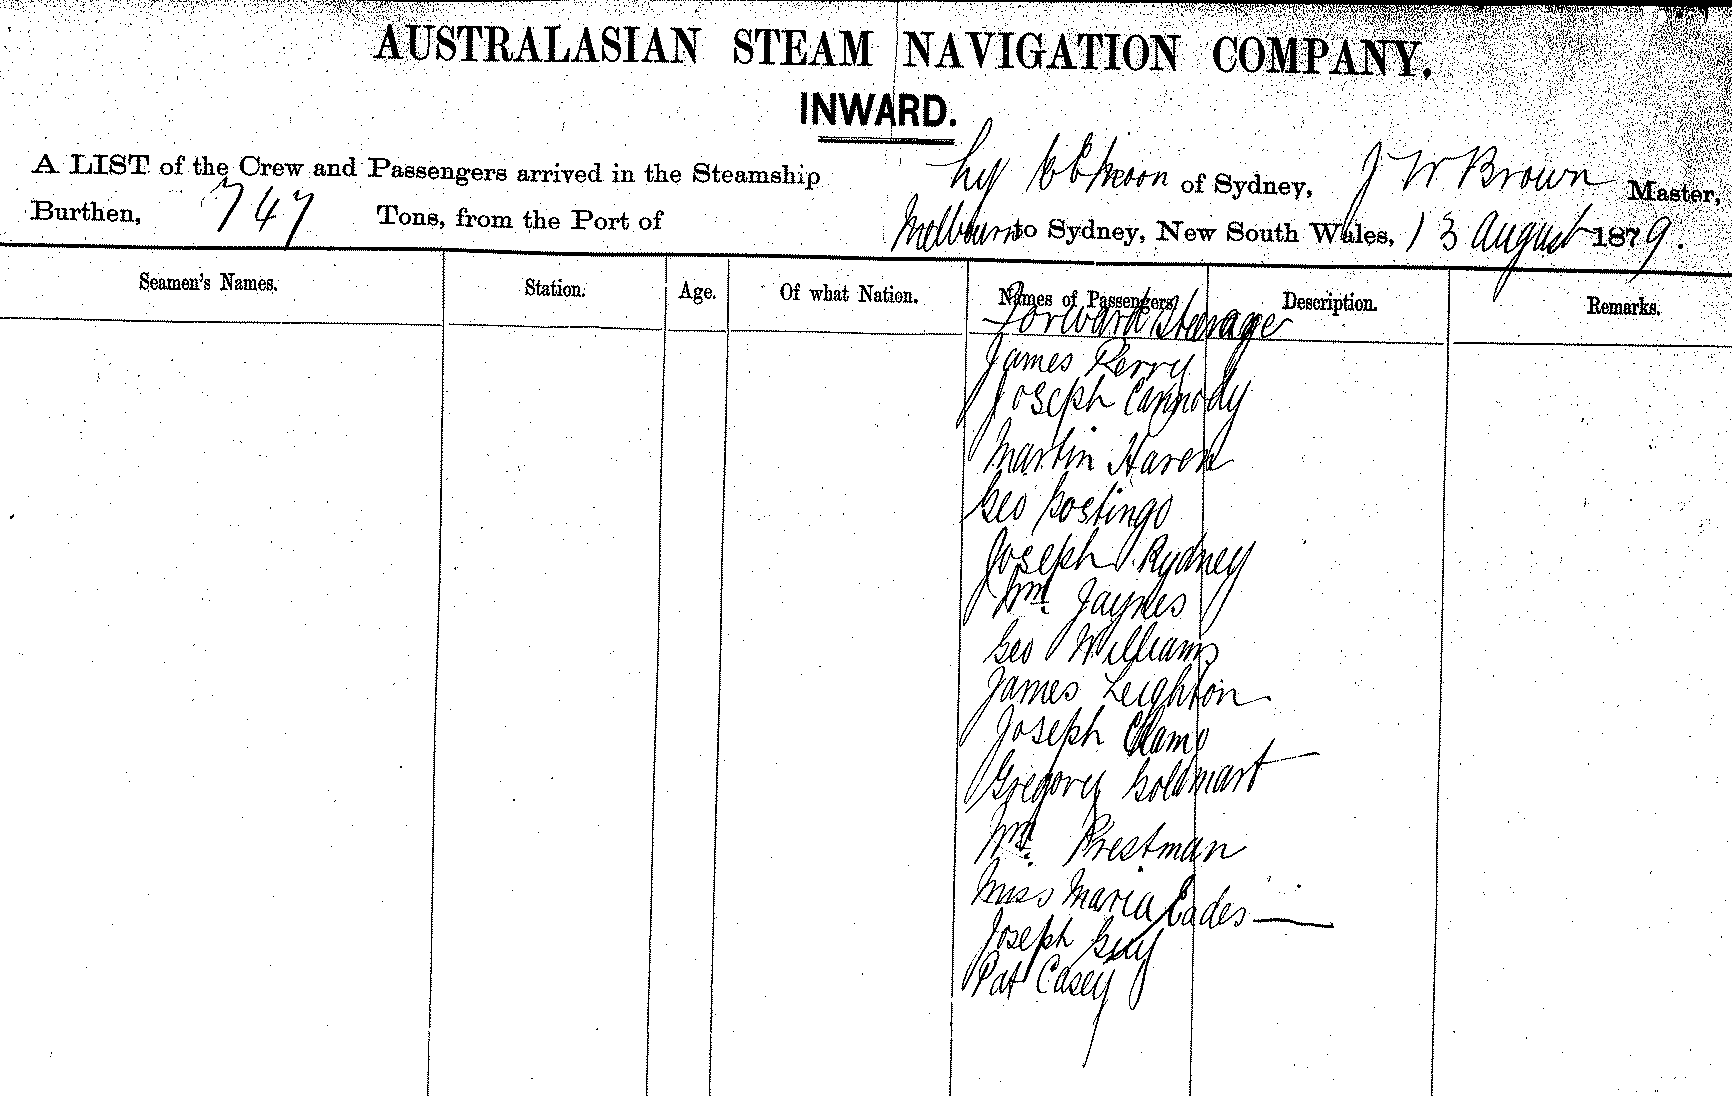 AUSTRALASIAN STEAM NAVIGATION COMPANY.
INWARD.
A LIST of the Crew and Passengers arrived in the Steamship of Sydney, J W Brown Master,
Burthen, 747 Tons, from the Port of Melbourne to Sydney, New South Wales, 13 August 1879.
Seamen's Names. Station. Age. Of what Nation. Names of Passengers Description. Remarks.
Forward Steerage
James Perry
Joseph Cannody
Martin Haren
Geo Gostingo
Joseph Rydney
Wm. Jaynes
Geo Williams
James Leighton
Joseph
Gregory Goldmart
Wm. Prestman
Miss Maria Eades
Joseph Guy
Pat Casey